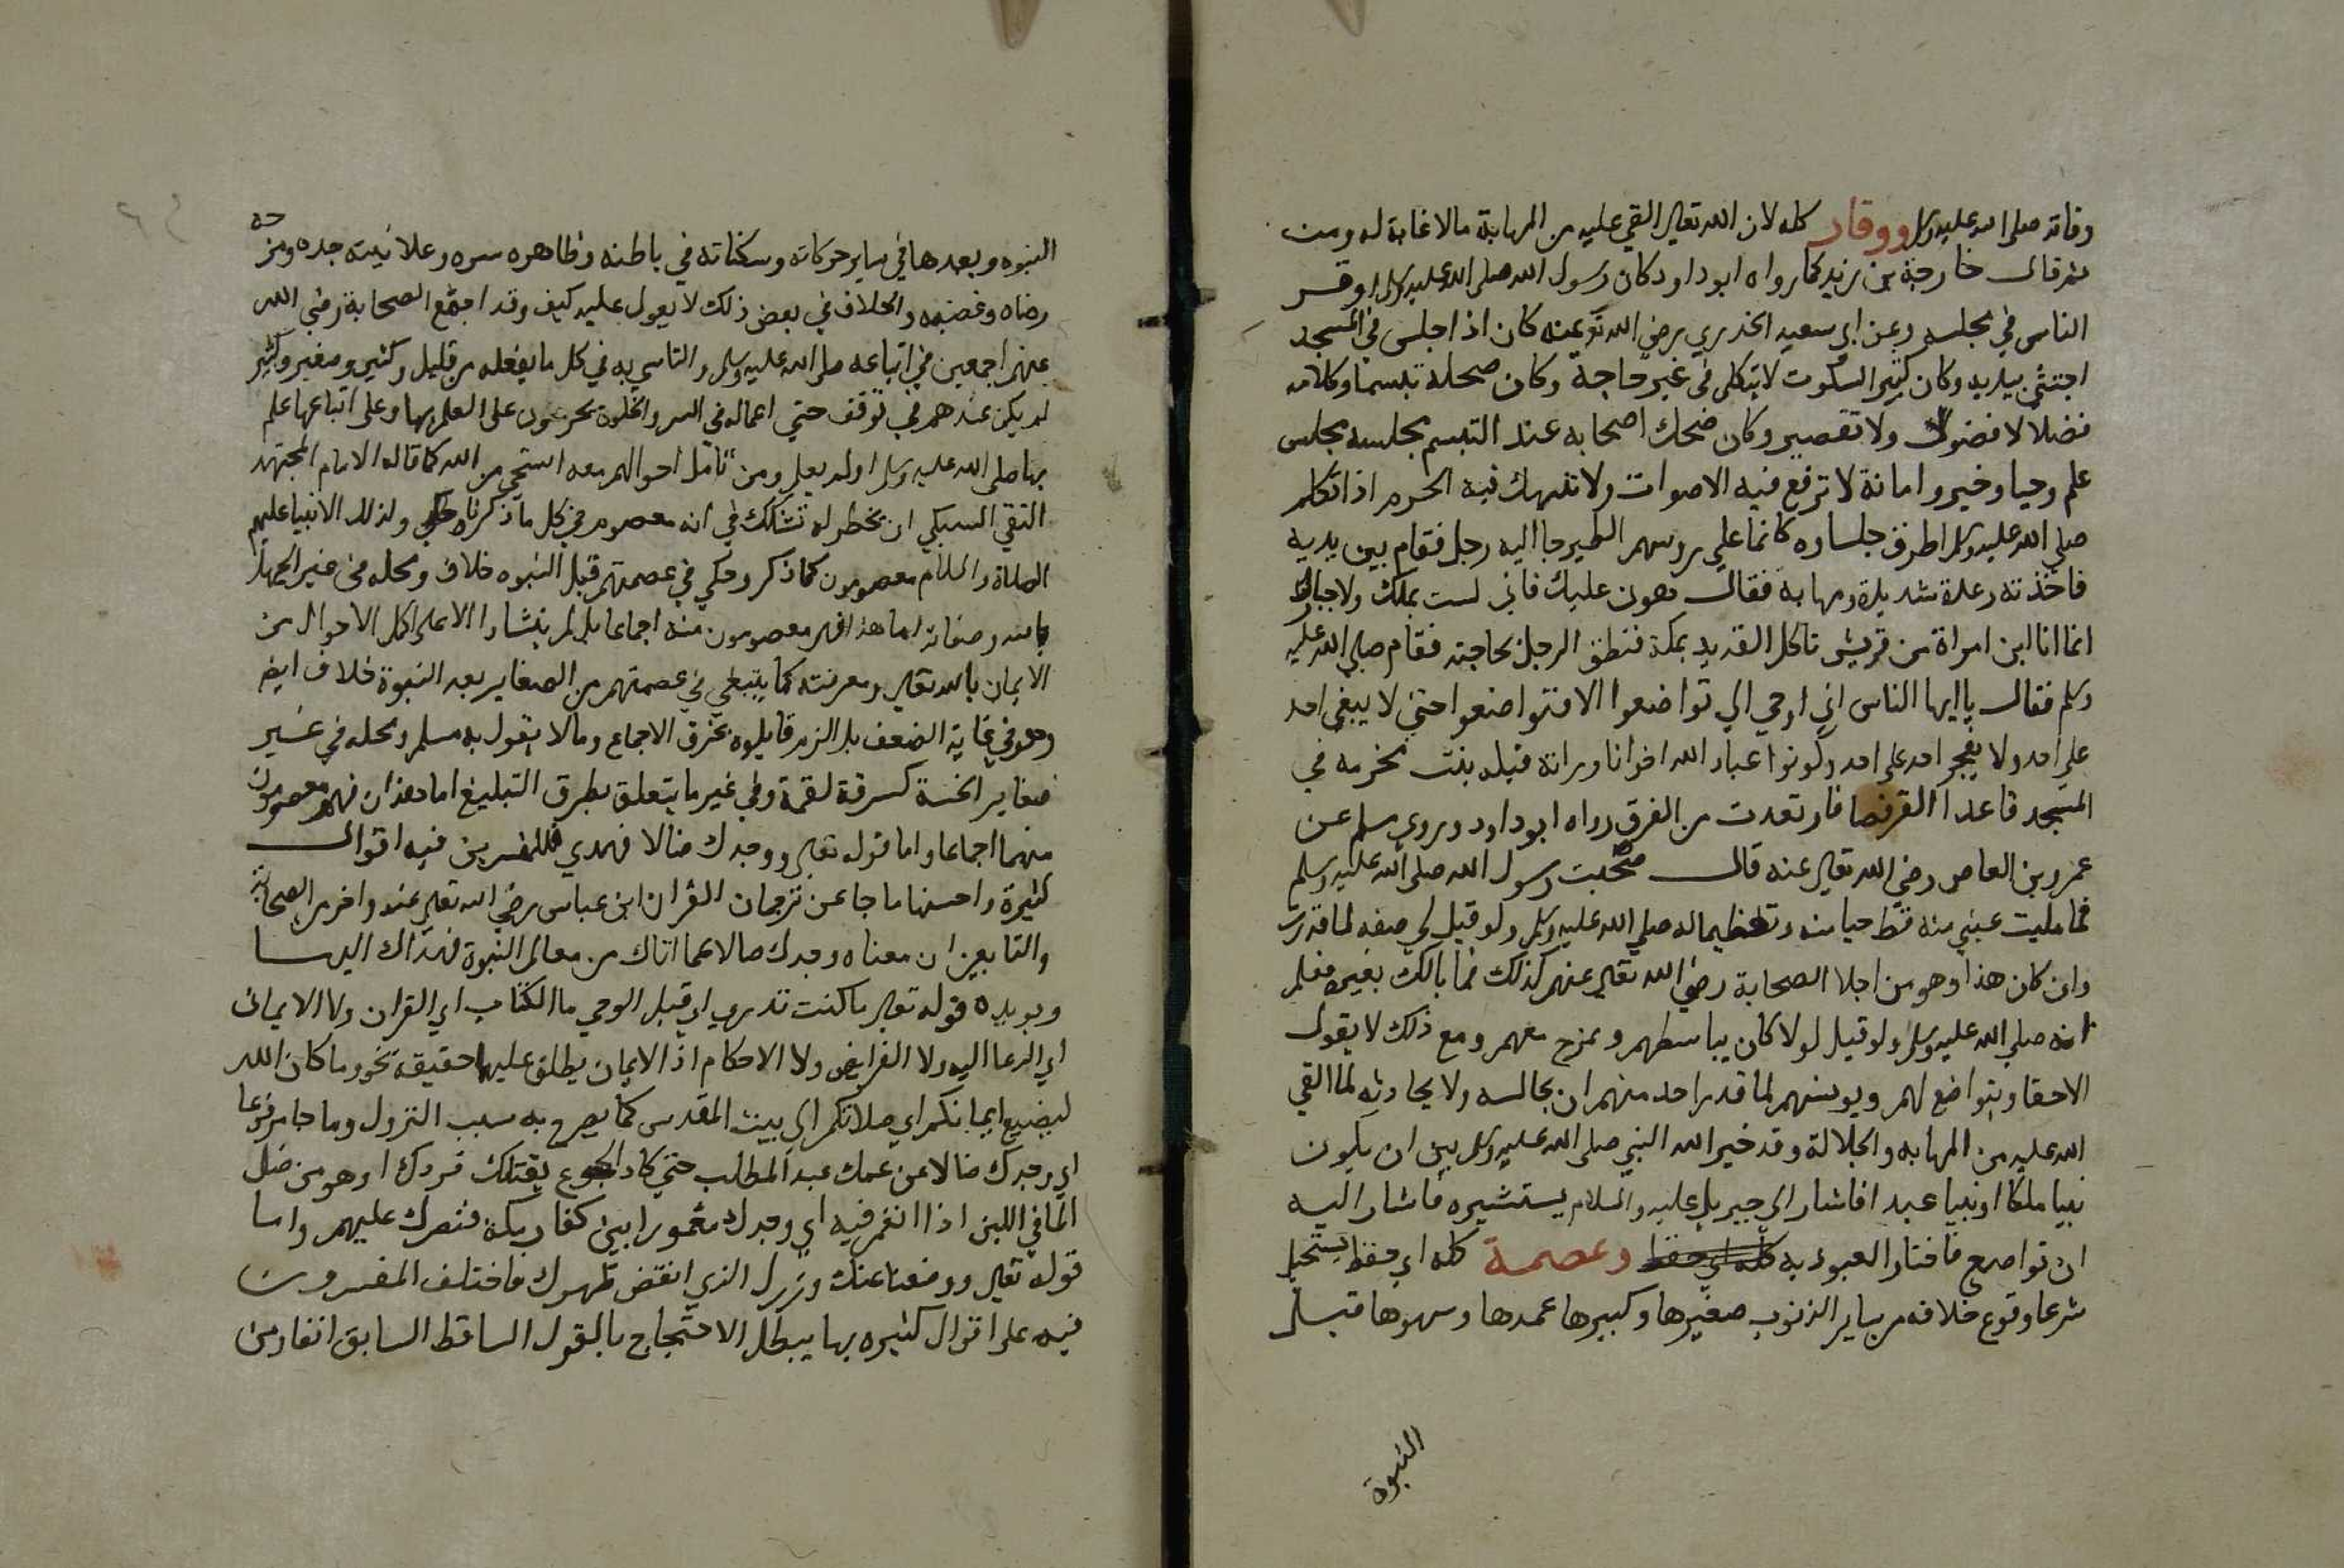 وفاته صلى الله عليه وسلم ووقار كله لان الله تعالى القي عليه من المهابة مالا غاية له ومن
ثم قال خارجة بن زيد كما رواه ابو داود كان رسول الله صلى الله عليه وسلم اوقر
الناس في مجلسه وعن ابي سعيد الخدري رضي الله تع عنه كان اذا جلس في المسجد
احتبى بيديه وكان كثير السكوت لا يتكلم في غير حاجة وكان ضحكه تبسما وكلامه
فضلا لا فضول ولا تقصير وكان ضحك اصحابه عند التبسم مجلسه مجلس
علم وحيا وخير وامانة لا ترفع فيه الاصوات ولا تنتهك فيه الحرم اذا تكلم
صلى الله عليه وسلم اطرق جلساوه كانما على روسهم الطير جا اليه رجل فقام بين يديه
فاخذته رعدة شديدة ومهابة فقال هون عليك فاني لست بملك ولا جبار
انما انا ابن امراة من قريش تاكل القديد بمكة فنطق الرجل بحاجته فقام صلى الله عليه
وسلم فقال يا ايها الناس اني اوحي الي تواضعوا الا فتواضعوا حتى لا يبغي احد
على احد ولا يفخر احد على احد وكونوا عباد الله اخوانا وراته قيله بنت مخرمه في
المسجد قاعدا القرفصا فارتعدت من الفرق رواه ابو داود وروى مسلم عن
عمرو بن العاص رضي الله تعالى عنه قال صحبت رسول الله صلى الله عليه وسلم
فما مليت عيني منه قط حيا منه وتعظيما له صلى الله عليه وسلم ولو قيل لي صفه لما قدرت
وان كان هذا وهو من اجلا الصحابة رضي الله تعالى عنهم كذلك فما بالك بغيره فعلم
انه صلى الله عليه وسلم ولو قيل لولا كان يباسطهم ويمزح معهم ومع ذلك لا يقول
الا حقا ويتواضع لهم ويونسهم لما قدر احد منهم ان يجالسه ولا يحادثه لما القي
الله عليه من المهابه والجلالة وقد خير الله النبي صلى الله عليه وسلم بين ان يكون
نبيا ملكا او نبيا عبدا فاشار الى جبريل عليه والسلام يستشيره فاشار اليه
ان تواضع فاختار العبوديه كله اي حفظ وعصمة كله اي حفظ يستحيل
شرعا وقوع خلافه من ساير الذنوب صغيرها وكبيرها عمدها وسهوها قبل
النبوة
النبوه وبعدها في ساير حركاته وسكناته في باطنه وظاهره سره وعلانيته جده ومزحه
رضاه وغضبه والخلاف في بعض ذلك لا يعول عليه كيف وقد اجتمع الصحابة رضي الله
عنهم اجمعين في اتباعه صلى الله عليه وسلم والتاسي به في كل ما يفعله من قليل وكثير وصغير وكبير
لم يكن عندهم في توقف حتى اعماله في السر والخلوة يحرصون على العلم بها وعلى اتباعها علم
بها صلى الله عليه وسلم اولم يعلم ومن تامل احوالهم معه استحى من الله كما قاله الامام المجتهد
التقي السبكي ان يخطر له تشكك في انه معصوم في كل ما ذكرناه ولذلك الانبيا عليهم
الصلاة والسلام معصومون كما ذكر وحكي في عصمتهم قبل النبوه خلاف ومحله في غير الجهل
بالله وصفاته اما هذا فهم معصومون منه اجماعا بل لم ينشاوا الا على اكمل الاحوال من
الايمان بالله تعالى ومعرفته كما ينبغي في عصمتهم من الصغاير بعد النبوة خلاف ايض
وهو في غاية الضعف بل الزم قايلوه بخرق الاجماع ومالا يقول به مسلم ومحله في غير
صغاير الخسة كسرقة لقمة وفي غير ما يتعلق بطرق التبليغ اما هذان فهم معصومون
منهما اجماعا واما قوله تعالى ووجدك ضالا فهدي فللمفسرين فيه اقوال
كثيرة واحسنها ما جا عن ترجمان القران ابن عباس رضي الله تعالى عنه واخر من الصحابة
والتابعين ان معناه وجدك ضالا عما اتاك من معالم النبوة فهداك اليها
ويويده قوله تعالى ما كنت تدري اي قبل الوحي ما الكتاب اي القران ولا الايمان
اي الدعا اليه ولا الفرايض ولا الاحكام اذ الايمان يطلق عليها حقيقة نحو وما كان الله
ليضيع ايمانكم اي صلاتكم الى بيت المقدس كما يصرح به سبب النزول وما جا مرفوعا
اي وجدك ضالا عن عمك عبد المطلب حتى كاد الجوع يقتلك فردك او هو من ضل
الما في اللبن اذا انغمر فيه اي وجدك مغمورا بين كفار مكة فنصرك عليهم واما
قوله تعالى ووضعنا عنك وزرك الذي انقض ظهرك فاختلف المفسرون
فيه على اقوال كثيره بها يبطل الاحتجاج بالقول الساقط السابق انفا ومن